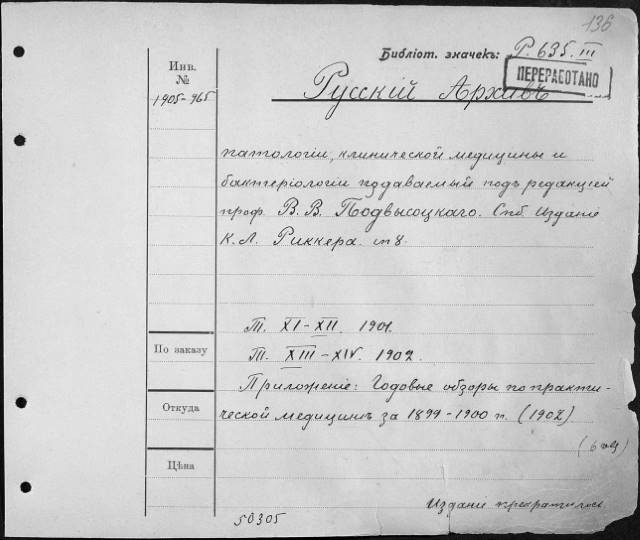 136
Библіот. значекъ: Р. 635. III
Инв.
№
ПЕРЕРАБОТАНО
1905-965
Русскій Архивъ
патологіи, клинической медицины и
бактеріологіи издаваемый подъ редакціей
проф. В. В. Подвысоцкаго. Спб Изданіе
К. Л. Риккера. in 8.
Т. XI-XII. 1901.
По заказу
Т. XIII-XIV. 1902.
Приложеніе: Годовые обзоры по практи-
Откуда
ческой медицинѣ за 1899-1900 г. (1902)
Цѣна
Изданіе прекратилось
50305